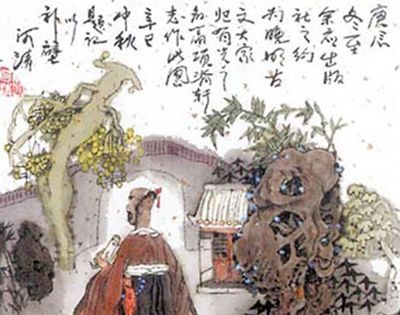 庚辰
冬至
余应出版
社之约
为晚明古
文大家
归有光
项脊轩
志作此图
辛巳
仲秋
题记
以
补壁